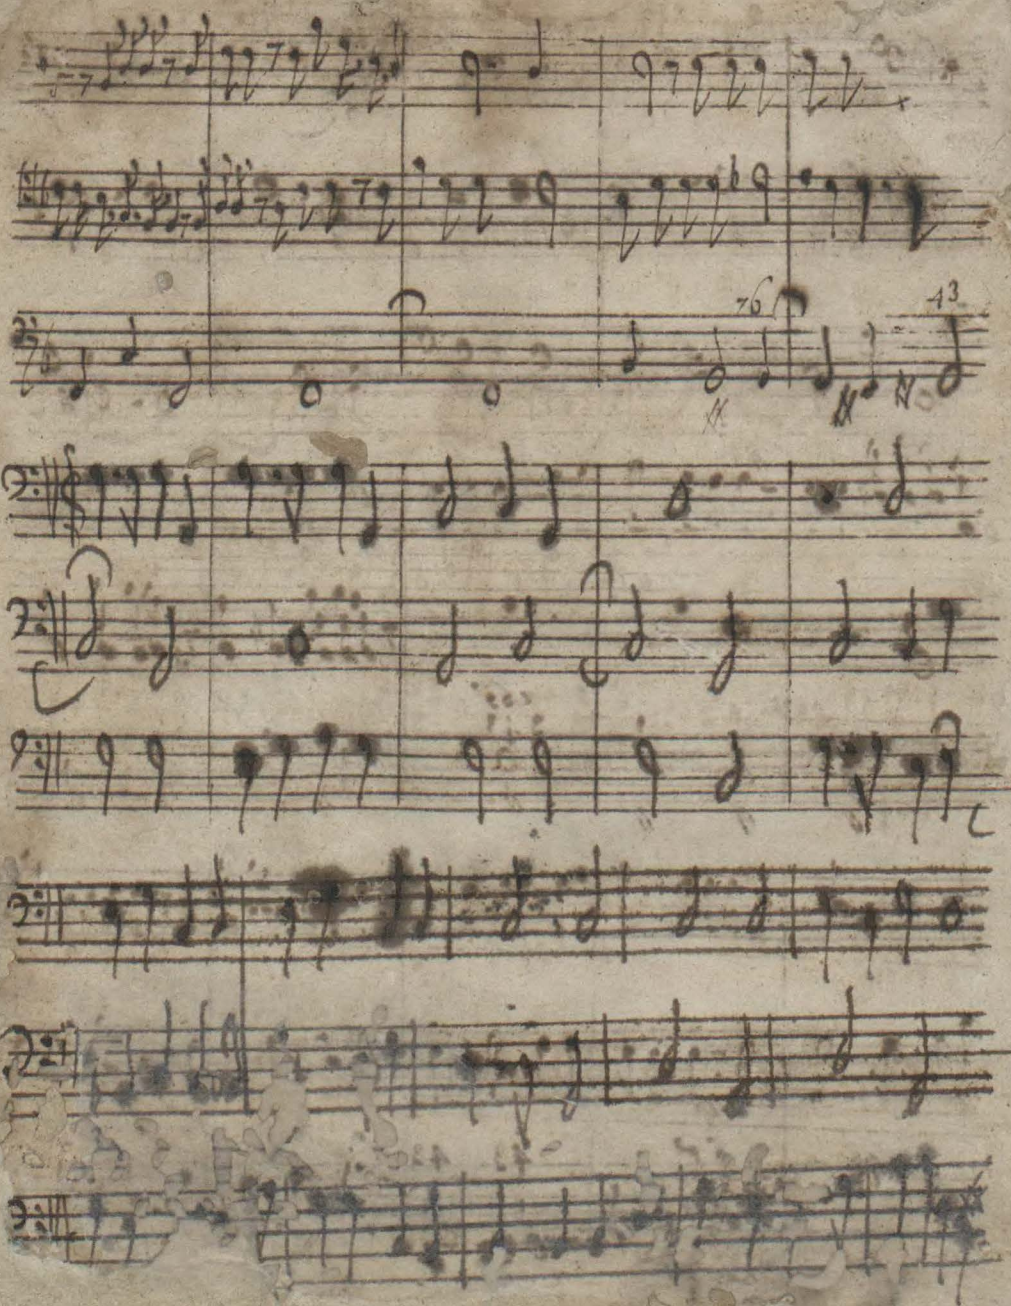 76 43